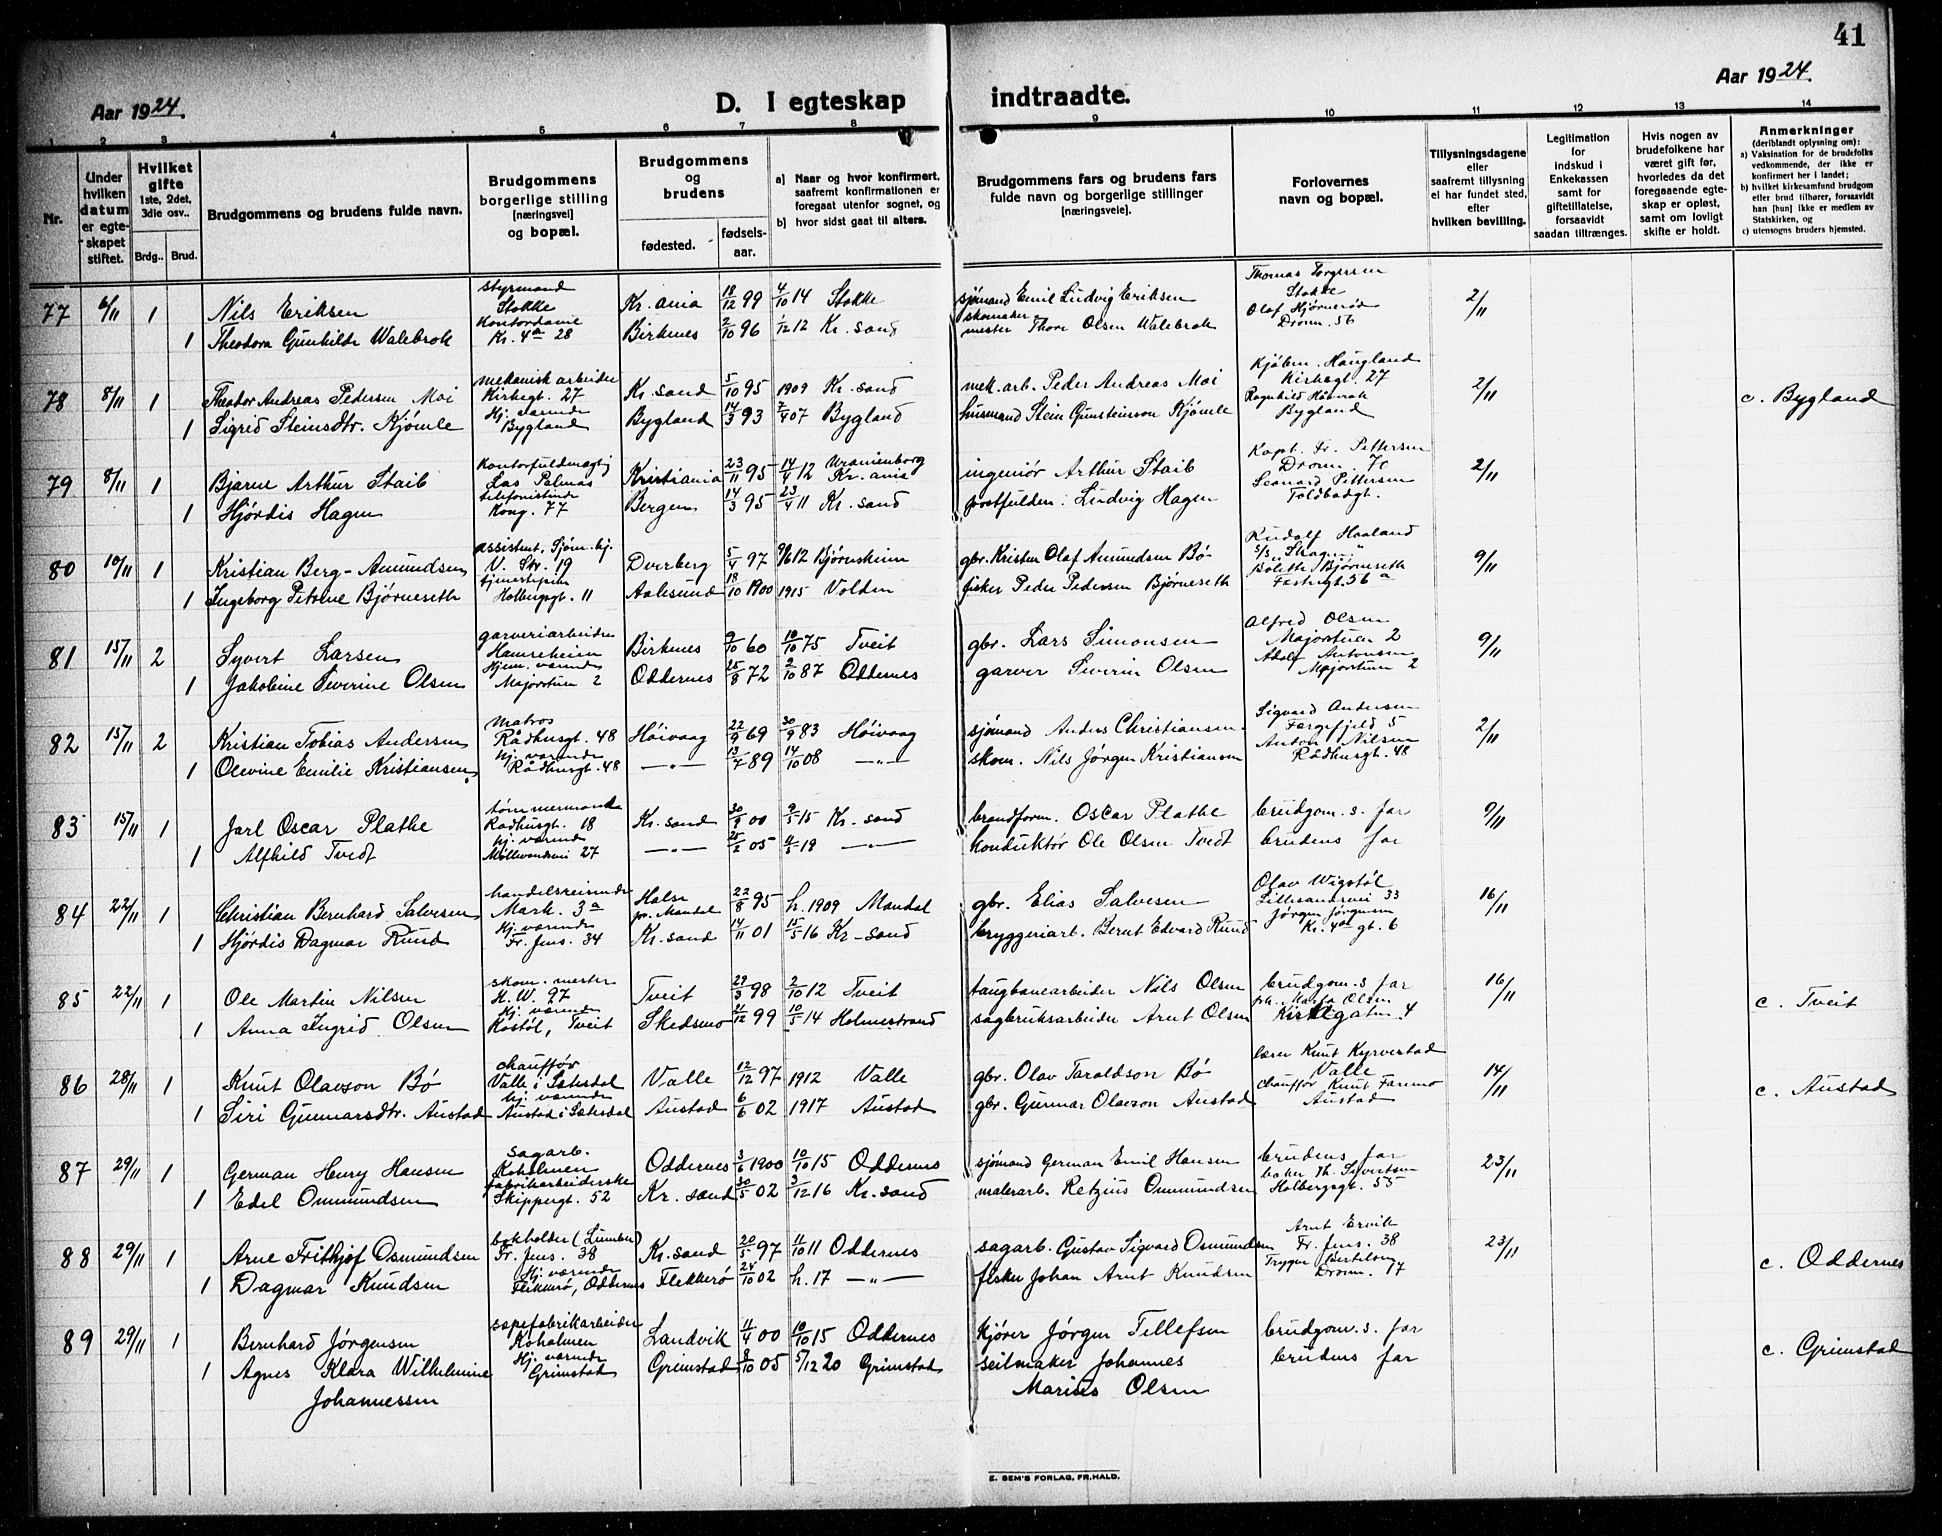 41
Aar 1924.
D. I egteskap indtraadte.
Aar 1924.
1 2 3 4 5 6 7 8 9 10 11 12 13 14
Nr.
Under hvilken datum er egteskapet stiftet.
Hvilket gifte 1ste, 2det, 3die osv..
Brdg.. Brud.
Brudgommens og brudens fulde navn.
Brudgommens borgerlige stilling [næringsvei] og bopæl.
Brudgommens og brudens
fødested. fødsels-aar.
a) Naar og hvor konfirmert, saafremt konfirmationen er foregaat utenfor sognet, og
b) hvor sidst gaat til alters.
Brudgommens fars og brudens fars fulde navn og borgerlige stillinger [næringsveie].
Forlovernes navn og bopæl.
Tillysningsdagene eller saafremt tillysning ei har fundet sted, efter hvilken bevilling.
Legitimation for indskud i Enkekassen samt for giftetillatelse, forsaavidt saadan tiltrænges.
Hvis nogen av brudefolkene har været gift før, hvorledes da det foregaaende egteskap er opløst, samt om lovligt skifte er holdt.
Anmerkninger (deriblandt oplysning om):
a) Vaksination for de brudefolks vedkommende, der ikke er konfirmert her i landet;
b) hvilket kirkesamfund brudgom eller brud tilhører, forsaavidt han [hun] ikke er medlem av Statskirken, og
c) utensogns bruders hjemsted.
77 6/11 1 Nils Eriksen styrmand Stokke Kr. ania 18/12 99 4/10 14 Stokke sjømand Emil Ludvig Eriksen Thomas Torgersen Stokke 2/11
1 Theodora Gunhilde Walebrok Kontordame Kr. 4a 28 Birkenes 2/10 96 1/12 12 Kr. sand skomakermester Thore Olsen Walebrok Olaf Hjørnerød Dronn. 56
78 8/11 1 Theodor Andreas Pedersen Moi mekanisk arbeider Kirkegt. 27 Kr. sand 5/10 95 1909 Kr. sand mek. arb. Peder Andreas Moi Kjøbm. Haugland Kirkegt. 27 2/11 c. Bygland
1 Sigrid Steinsdtr. Kjømle Hj. værende Bygland Bygland 14/3 93 07 Bygland husmand Stein Gunsteinson Kjømle Ragnhild Bygland
79 8/11 1 Bjarne Arthur Staib Kontorfuldmægtig Las Palmas Kristiania 23/11 95 14/4 12 Uranienborg Kr. ania ingeniør Arthur Staib Kapt. Fr. Pettersen Dronn. 70 2/11
1 Hjørdis Hagen telefonistinde Kong. 77 Bergen 14/3 95 23/4 11 Kr. sand postfuldm. Ludvig Hagen Leonard Pettersen Toldbodgt.
80 10/11 1 Kristian Berg-Amundsen assistent, Sjøm. hj. V. Str. 19 Dverberg 5/4 97 9/6 12 Bjørnskinn gbr. Kristen Olaf Amundsen Bø Rudolf Haaland 9/11
1 Ingeborg Petrine Bjørneseth tjenestepike Holbergsgt. 11 Aalesund 18/10 1900 1915 Volden fisker Peder Pedersen Bjørneseth Bolette Bjørneseth Festnigt 56a
81 15/11 2 Syvert Larsen garveriarbeider Hamreheien Birkenes 9/10 60 10/10 75 Tveit gbr. Lars Simonsen Alfred Olsen Majorstuen 2 9/11
1 Jakobine Severine Olsen Hjem. værende Majorstuen 2 Oddernes 25/8 72 2/10 87 Oddernes garver Severin Olsen Adolf Antonsen Majorstuen 2
82 15/11 2 Kristian Tobias Andersen Matros Rådhusgt. 48 Høivaag 22/9 69 30/9 83 Høivaag sjømand Anders Christiansen Sigvard Andersen Færgefjeld 5 2/11
1 Olevine Emilie Kristiansen hj. værende Rådhusgt. 48 —„— 13/7 89 14/10 08 —„— skom. Nils Jørgen Kristiansen Anton Nilsen Rådhusgt. 48
83 15/11 1 Jarl Oscar Plathe tømmermand Radhusgt. 18 Kr. sand 30/9 00 9/5 15 Kr. sand brandform. Oscar Plathe brudgom. s. far 9/11
1 Alfhild Tvedt hj. værende Møllevandsvei 27 —„— 25/2 05 4/5 19 —„— konduktør Ole Olsen Tvedt brudens far
84 22/11 1 Christian Bernhard Salvesen handelsreisende Mark. 3a Halse pr. Mandal 22/8 95 h. 1909 Mandal gbr. Elias Salvesen Olav Wigstøl Lillesandsvei 33 16/11
1 Hjørdis Dagmar Ruud Hj. værende Fr. Jens. 34 Kr. sand 14/11 01 15/5 16 Kr-sand bryggeriarb. Bernt Edvard Ruud Jørgen Jørgensen Kr. 4des gt. 6
85 22/11 1 Ole Martin Nilsen skom. mester K. W. 97 Tveit 29/3 98 2/10 12 Tveit taugbanearbeider Nils Olsen brudgom. s far 16/11 c. Tveit
1 Anna Ingrid Olsen Hj. værende Kostøl, Tveit Skedsmo 21/12 99 10/5 14 Holmestrand sagbruksarbeider Arnt Olsen frk. Marta Olsen Kirkegaten 4
86 28/11 1 Knut Olavson Bø chauffør Valle i Sætesdal Valle 12/12 97 1912 Valle gbr. Olav Taraldson Bø lærer Knut Kyrvestad Valle 14/11 c. Austad
1 Siri Gunnarsdtr. Austad hj. værende Austad i Sætesdal Austad 6/6 02 1917 Austad gbr. Gunnar Olavson Austad chauffør Knut Farmo Austad
87 29/11 1 German Henry Hansen sagarb. Koholmen Oddernes 3/6 1900 10/10 15 Oddernes sjømand German Emil Hansen brudens far 23/11
1 Edel Ommundsen fabrikarbeiderske Skippergt. 52 Kr. sand 30/5 02 3/12 16 Kr. sand malerarb. Retzius Ommundsen baker Th. Syvertsen Holbergsgt. 55
88 29/11 1 Arne Frithjof Osmundsen bokholder (Lumber) Fr. Jens. 38 Kr. sand 20/5 97 11/10 11 Oddernes sagarb. Gustav Sigvard Osmundsen Arnt Ervik Fr. Jens. 38 23/11 c. Oddernes
1 Dagmar Knudsen Hj. værende Flekkerø, Oddernes Flekkerø 24/10 02 h. 17 —„— fisker Johan Arnt Knudsen Trygve Bertelsen Dronn. 17
89 29/11 1 Bernhard Jørgensen sæpefabrikarbeider Koholmen Landvik 11/4 00 10/10 15 Oddernes kjører Jørgen Tellefsen brudgom. s. far c. Grimstad
1 Agnes Klara Wilhelmine Johannessen Hj. værende Grimstad Grimstad 8/10 05 5/12 20 Grimstad seilmaker Johannes Marius Olsen brudens far
E. SEM'S FORLAG, FR.HALD.